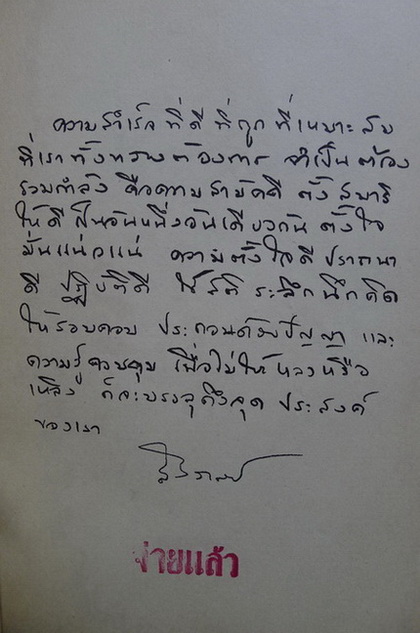 ความสำเร็จ ที่ดี ที่ถูก ที่เหมาะสม
ที่เราทั้งหลายต้องการ จำเป็นต้อง
รวมกำลัง คือความสามัคคี ตั้งสมาธิ
ให้ดี เป็นอันหนึ่งอันเดียวกัน ตั้งใจ
มั่นแน่วแน่ ความตั้งใจดี ปรารถนา
ดี ปฏิบัติดี ใช้สติ ระลึกนึกคิด
ให้รอบคอบ ประกอบด้วยปัญญา และ
ความรู้ควบคุม เพื่อไม่ให้หลงหรือ
เหลิง ก็จะบรรลุถึงจุด ประสงค์
ของเรา
จ่ายแล้ว